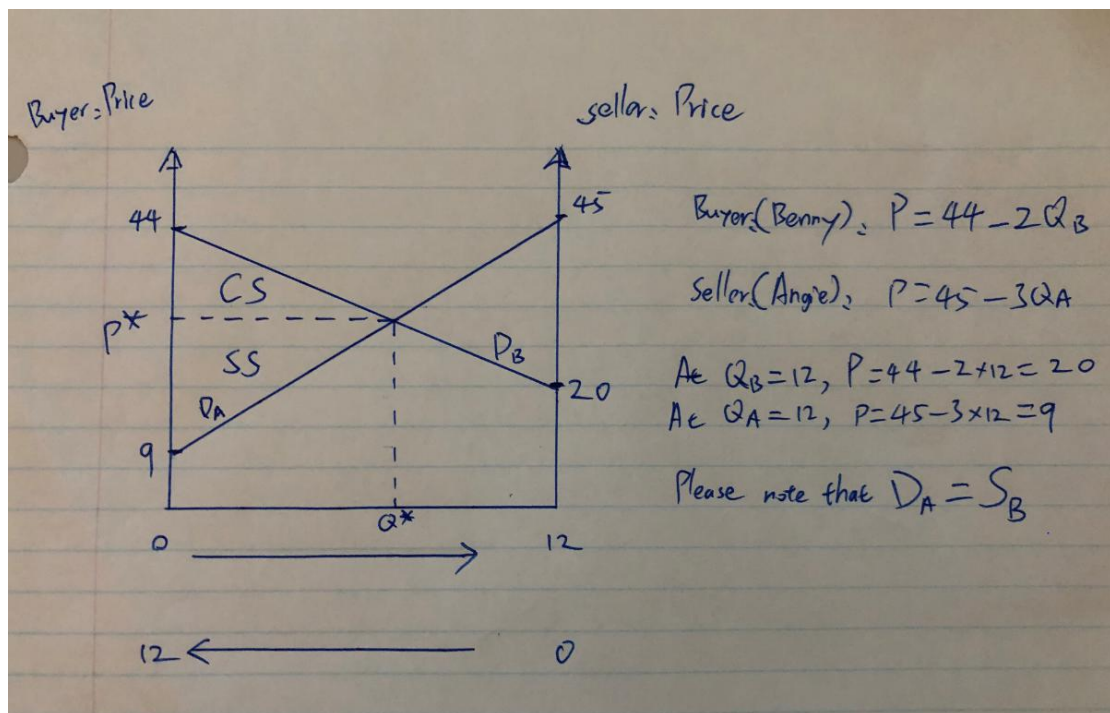 Buyer: Price
seller: Price
44
45
CS
P*
SS
DB
DA
20
9
Q*
0
12
12
0
Buyer(Benny): P=44-2QB
Seller(Angie): P=45-3QA
At QB=12, P=44-2×12=20
At QA=12, P=45-3×12=9
Please note that DA=SB